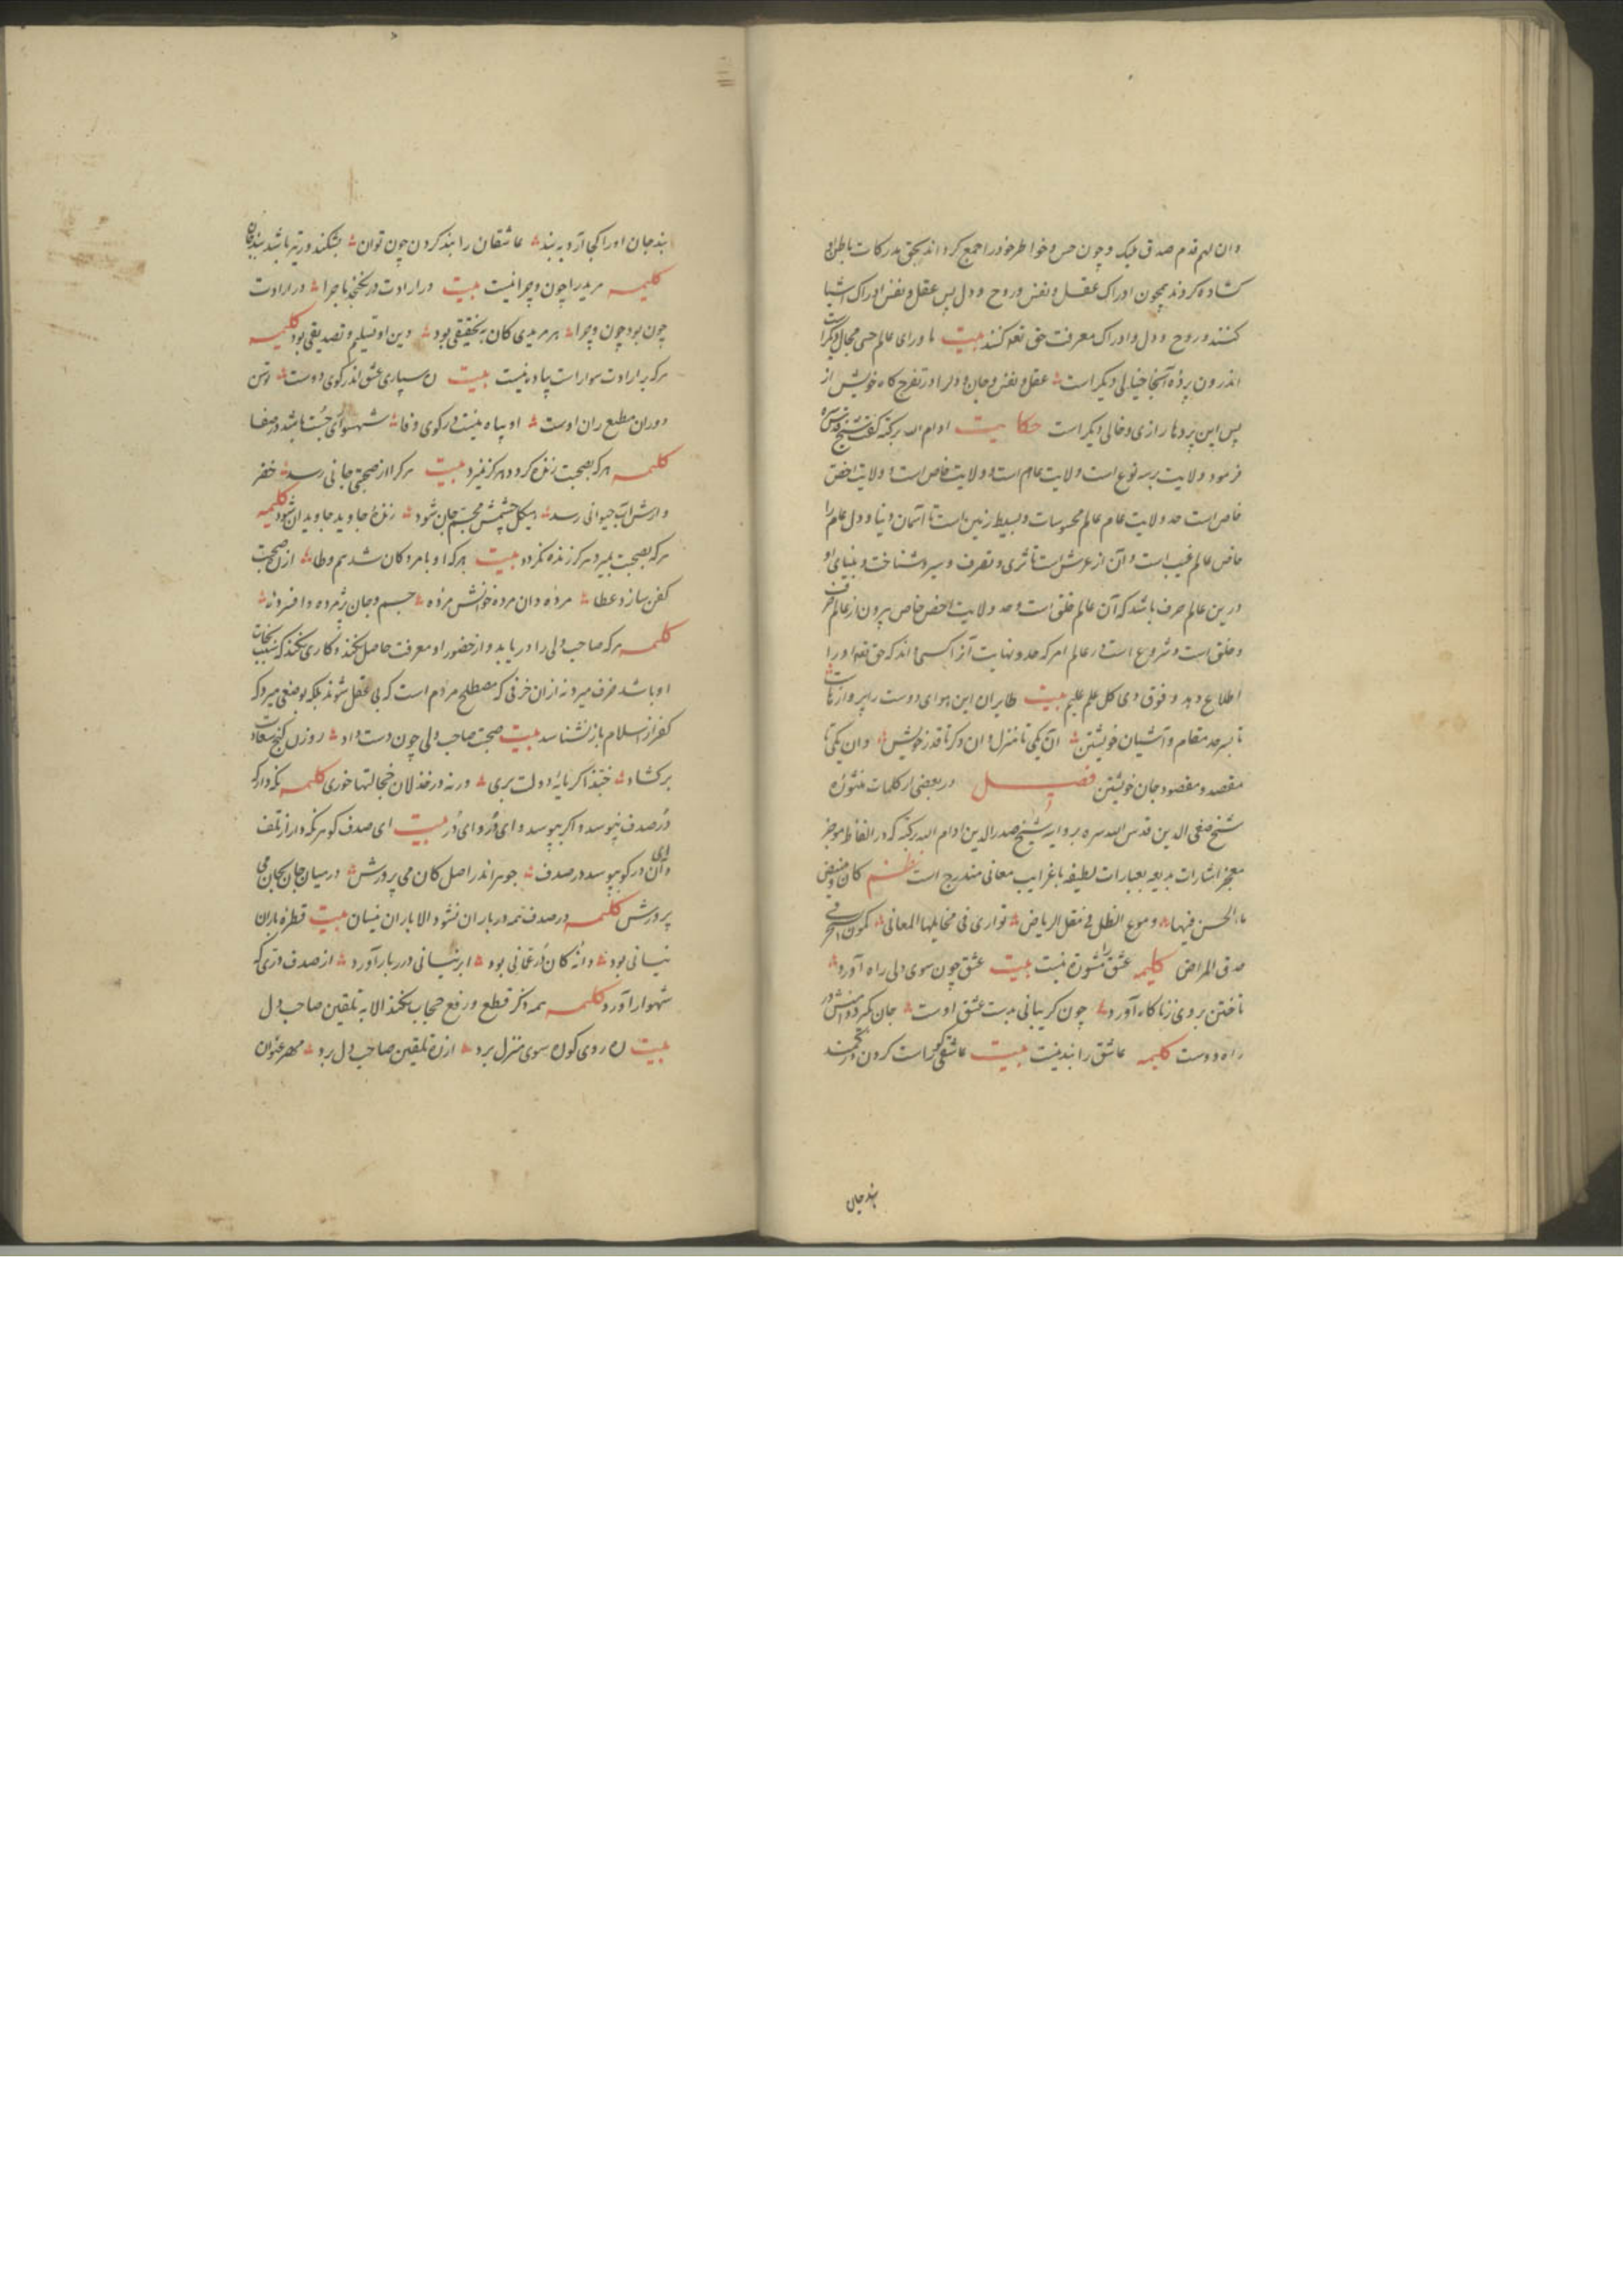 وان لهم قدم صدق عند و چون حس و خواطر خود را جمع کرده اند بحق مدرکات باطن
کشاده کردند همچون ادراک عقل و نفس و روح و دل پس عقل و نفس ادراک اشیا
کنند و روح و دل و ادراک معرفت حق تعه کنند بیت ماورای عالم حسی مجال دیگر است
اندرون پرده آنجا خیالی دیگر است عقل و نفس و جان و دل را در تفرج گاه خویش از
پس این پردها رازی و حالی دیگر است حکایت ادام الله برکته گفت شیخ قدس سره
فرمود ولایت بر سه نوع است ولایت عام است و ولایت خاص است و ولایت اخص
خاص است حد ولایت عام عالم محسوسات و بسیط زمین است تا آسمان دنیا و دل عام را
خاص عالم غیب است و آن از عرش است تا ثری و تصرف و سیر و شناخت و بینای او
درین عالم صرف باشد که آن عالم خلق است و حد ولایت اخص خاص بیرون از عالم صرف
و خلق است و شروع است در عالم امر که حد و نهایت آنرا کسی داند که حق تعه او را
اطلاع دهد و فوق ذی کل علم علیم بیت طایران این هوای دوست را پروازهاست
تا بسرحد مقام و آشیان خویشتن آن یکی تا منزل و ان دکر تا قدر خویش وان یکی تا
مقصد و مقصود جان خویشتن فصل در بعضی از کلمات منثوره
شیخ صفی الدین قدس الله سره بروایه شیخ صدرالدین ادام الله برکته که در الفاظ موجز
معجز اشارات بدیعه بعبارات لطیفه با غرایب معانی مندرج است نظم کان و میض
ماء الحسن فیها دموع الطل فی مقل الریاض تواری فی مخایلها المعانی کمون السحر فی
حدق المراض کلمه عشق را مشوره نیست بیت عشق چون سوی دلی راه آورد
تاختن بر وی زناگاه آورد چون کریبانی بدست عشق اوست جان
راه دوست کلمه عاشق را بند نیست بیت عاشقی کو راست کردن در کمند
بند جان
بند جان او را کجا آرد به بند عاشقان را بند کردن چون توان بشکند ور تیر باشد بند جان
کلیمه مرید را چون و چرا نیست بیت در ارادت در نکنجد ماجرا در ارادت
چون بود چون و چرا هر مریدی کان بتحقیقی بود دین او تسلیم و تصدیقی بود کلیمه
هرکه بر ارادت سوار است پیاده نیست بیت ره سپاری عشق اندر کوی دوست توسن
دوران مطیع ران اوست او پیاده نیست در کوی وفا شهسواری چست باشد در صفا
کلمه هرکه بصحبت زنده کردد هرکز نمیرد بیت هرکرا از صحبتی جانی رسد خضر
وارش آب حیوانی رسد هیکل جسمش مجسم جان شود زنده جاوید جاویدان شود کلیمه
هرکه بصحبت بمیرد هرکز زنده نکردد بیت هرکه او با مردکان شد هم وطا از صحبت
کفن سازد عطا مرده دان مرده خوانش مرده جسم و جان پژمرده و افسرده
کلمه هرکه صاحب دلی را دریابد و از حضور او معرفت حاصل نکند و کاری نکند که سبب نجات
او باشد خرف میرد نه ازان خرفی که مصطلح مردم است که بی عقل شوند بلکه بوضعی میرد که
کفر از اسلام باز نشناسد بیت صحبت صاحب دلی چون دست داد روزن کنج سعادت
برکشاد خیتذا کر مایه دولت بری ورنه در خذلان خجالتها خوری کلمه نکه دار که
در صدف نپوسد و اکر بپوسد وای در و ای در بیت ای صدف کوهر نکه دار از تلف
وای آن در کو بپوسد در صدف جوهر اندر اصل کان می پرورش در میان جان بجان می
پرورش کلمه در صدف همه در باران نشود الا باران نیسان بیت قطره باران
نیسانی بود دانه کان در عمانی بود ابر نیسانی درر بار آورد از صدف دری که
شهوار آورد کلمه همه ذکر قطع و رفع حجاب نکند الا به تلقین صاحب دل
بیت ره روی کو ره سوی منزل برد از ره تلقین صاحب دل برد